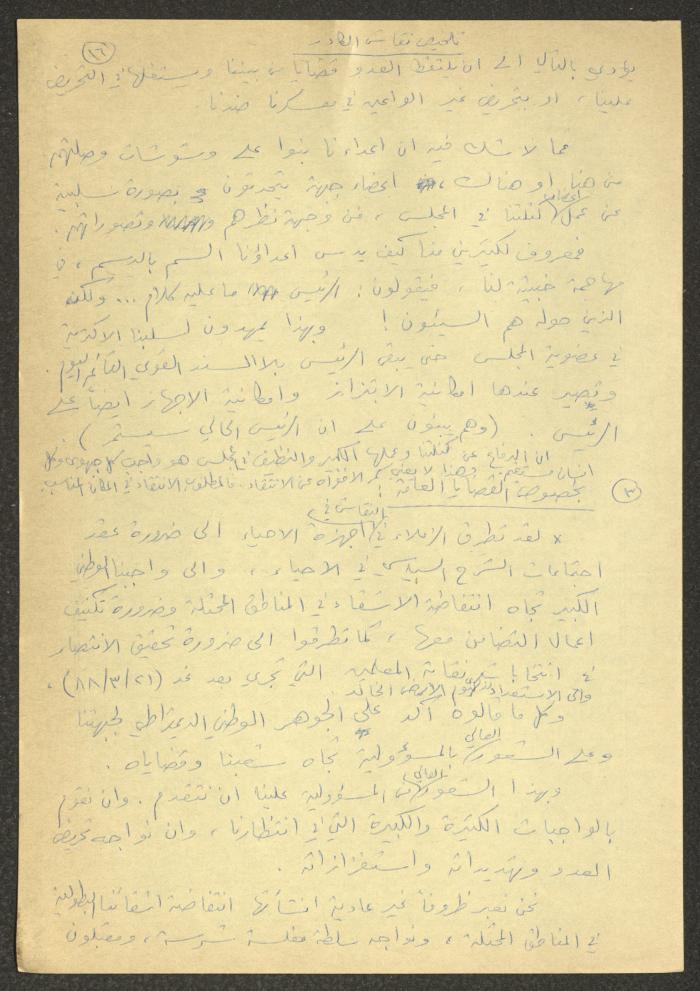 (١٦)
تلخيص نقاش الكادر
يؤدي بالتالي الى ان يلتقط العدو قضايا من بيننا ويستغلها في التحريض
علينا، او بتحريض غير الواعين في معسكرنا ضدنا.
مما لا شك فيه ان اعداءنا بنوا على وشوشات وصلتهم
من هنا او هناك، اعضاء جبهة يتحدثون بصورة سلبية
عن عمل اعضاء كتلتنا في المجلس، من وجهة نظرهم وتصوراتهم.
فمعروف لكثيرين منا كيف يدس اعداؤنا السم بالدسم، في
مهاجمة خبيثة لنا، فيقولون: الرئيس ما عليه كلام... ولكن
الذين حوله هم السيئون! وبهذا يمهدون لسلبنا الاكثرية
في عضوية المجلس حتى يبقى الرئيس بلا السند القوي القائم اليوم.
وتصير عندها امكانية الابتزاز وامكانية الاجهاز ايضاً على
الرئيس. (وهم يبنون على ان الرئيس الحالي سيستمر)
ان الدفاع عن كتلتنا وعملها الكبير والنظيف في المجلس هو واجب كل جبهوي وكل
انسان مستقيم وهذا لا يعني كم الافواه عن الانتقاد. فالمطلوب الانتقاد في المكان المناسب
(٣) بخصوص القضايا العامة:
* لقد تطرق الزملاء في النقاش في اجهزة الاحياء الى ضرورة عقد
اجتماعات الشرح السياسي في الاحياء، والى واجبنا الوطني
الكبير تجاه انتفاضة الاشقاء في المناطق المحتلة وضرورة تكثيف
اعمال التضامن معها، كما تطرقوا الى ضرورة تحقيق الانتصار
في انتخابات نقابة المعلمين التي تجري بعد غد (٨٨/٣/٢١)،
والى الاستعداد ليوم الارض الخالد
وكل ما قالوه اكد على الجوهر الوطني الديمقراطي لجبهتنا
وعلى الشعور العالي بالمسؤولية تجاه شعبنا وقضاياه.
وبهذا الشعور العالي بالمسؤولية علينا ان نتقدم. وان نقوم
بالواجبات الكثيرة والكبيرة التي في انتظارنا، وان نواجه تحريض
العدو وتهديداته واستفزازاته.
نحن نعبر ظروفاً غير عادية انشأتها انتفاضة اشقائنا البطولية
في المناطق المحتلة، ونواجه سلطة مفلسة شرسة، ومقبلون